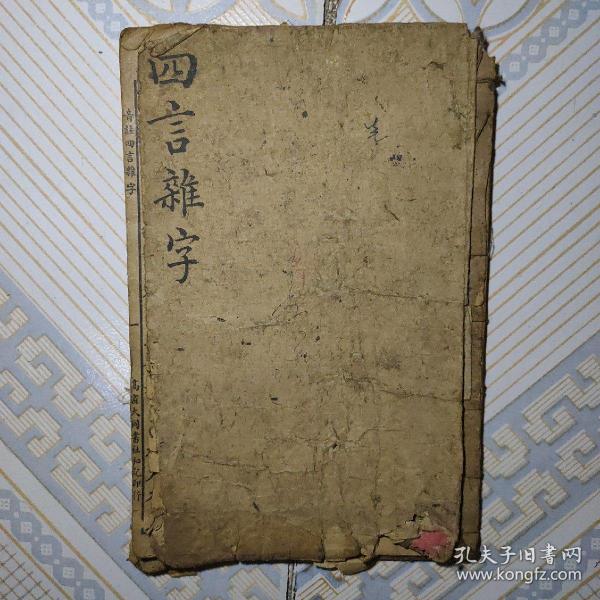 四言雜字
音註四言雜字
大同書社和記印行
孔夫子旧书网
www.kongfz.com